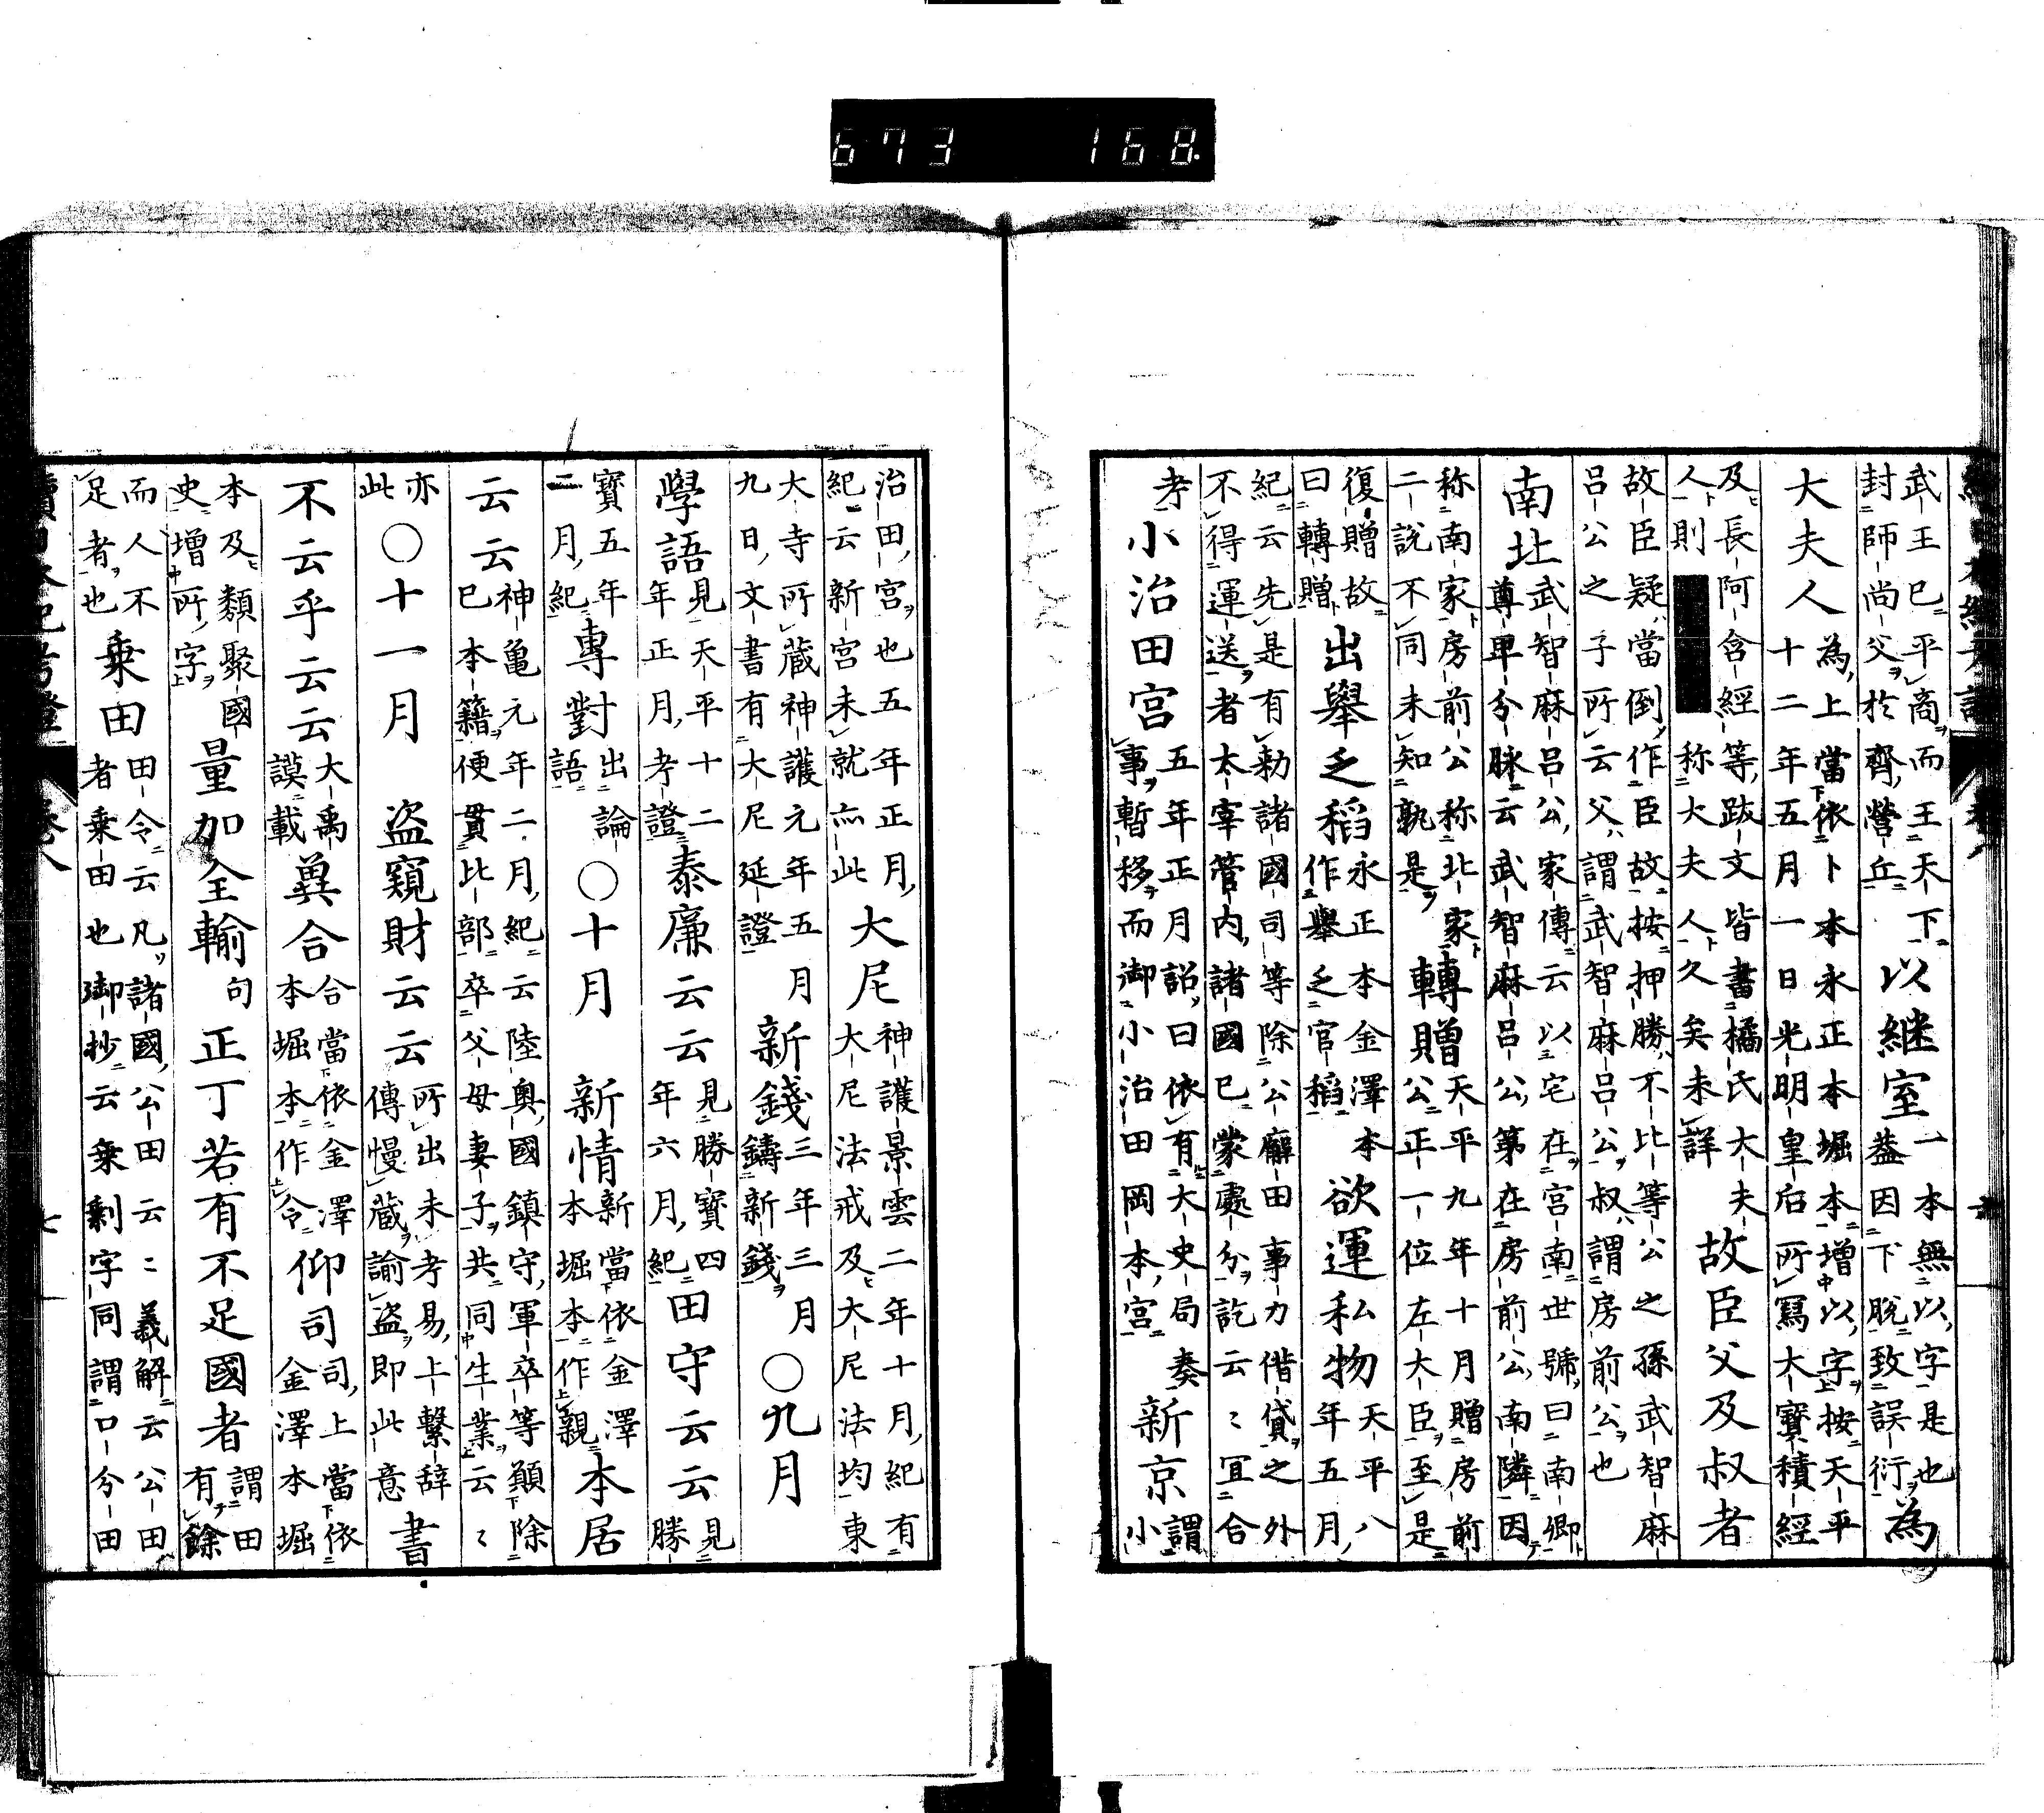 673 168.
武王已平商而王天下
封師尚父於齊營丘
以継室
一本無以字是也
蓋因下脱致誤衍
為
大夫人
為上當依卜本永正本堀本増以字按天平
十二年五月一日光明皇后所寫大寶積經
及長阿含經等跋文皆書橘氏大夫
人則
称大夫人久矣未詳
故臣父及叔者
故臣疑當倒作臣故按押勝不比等公之孫武智麻
呂公之子所云父謂武智麻呂公叔謂房前公也
南北
武智麻呂公家傳云以宅在宮南世號曰南卿
尊卑分脉云武智麻呂公第在房前公南隣因
称南家房前公称北家
二說不同未知孰是
轉贈
天平九年十月贈房前
公正一位左大臣至是
復贈故
曰轉贈
出舉乏稻
永正本金澤本
作舉乏官稻
欲運私物
天平八
年五月
紀云先是有勅諸國司等除公廨田事力借貸之外
不得運送者太宰管内諸國已蒙處分訖云〻冝合
考
小治田宮
五年正月詔曰依有大史局奏
事暫移而御小治田岡本宮
新京
謂
小
治田宮也五年正月
紀云新宮未就亦此
大尼
神護景雲二年十月紀有
大尼法戒及大尼法均東
大寺所藏神護元年五月
九日文書有大尼延證
新錢
三年三月
鑄新錢
○九月
學語
見天平十二
年正月考證
泰廉云云
見勝寳四
年六月紀
田守云云
見
勝
寳五年年
二月紀
專對
出論
語
○十月
新情
新當依金澤
本堀本作親
本居
云云
神亀元年二月紀云陸奥國鎮守軍卒等願除
已本籍便貫比部卒父母妻子共同生業云〻
亦
此
○十一月
盗窺財云云
所出未考易上繫辞
傳慢藏諭盗即此意
書
不云乎云云
大禹
謨載
冀合
合當依金澤
本堀本作令
仰司
司上當依
金澤本堀
本及類聚國
史增所字
量加全輸
句
正丁若有不足國者
謂田
有餘
而人不
足者也
乗田
田令云凡諸國公田云〻義解云公田
者乗田也御抄云乗剩字同謂口分田